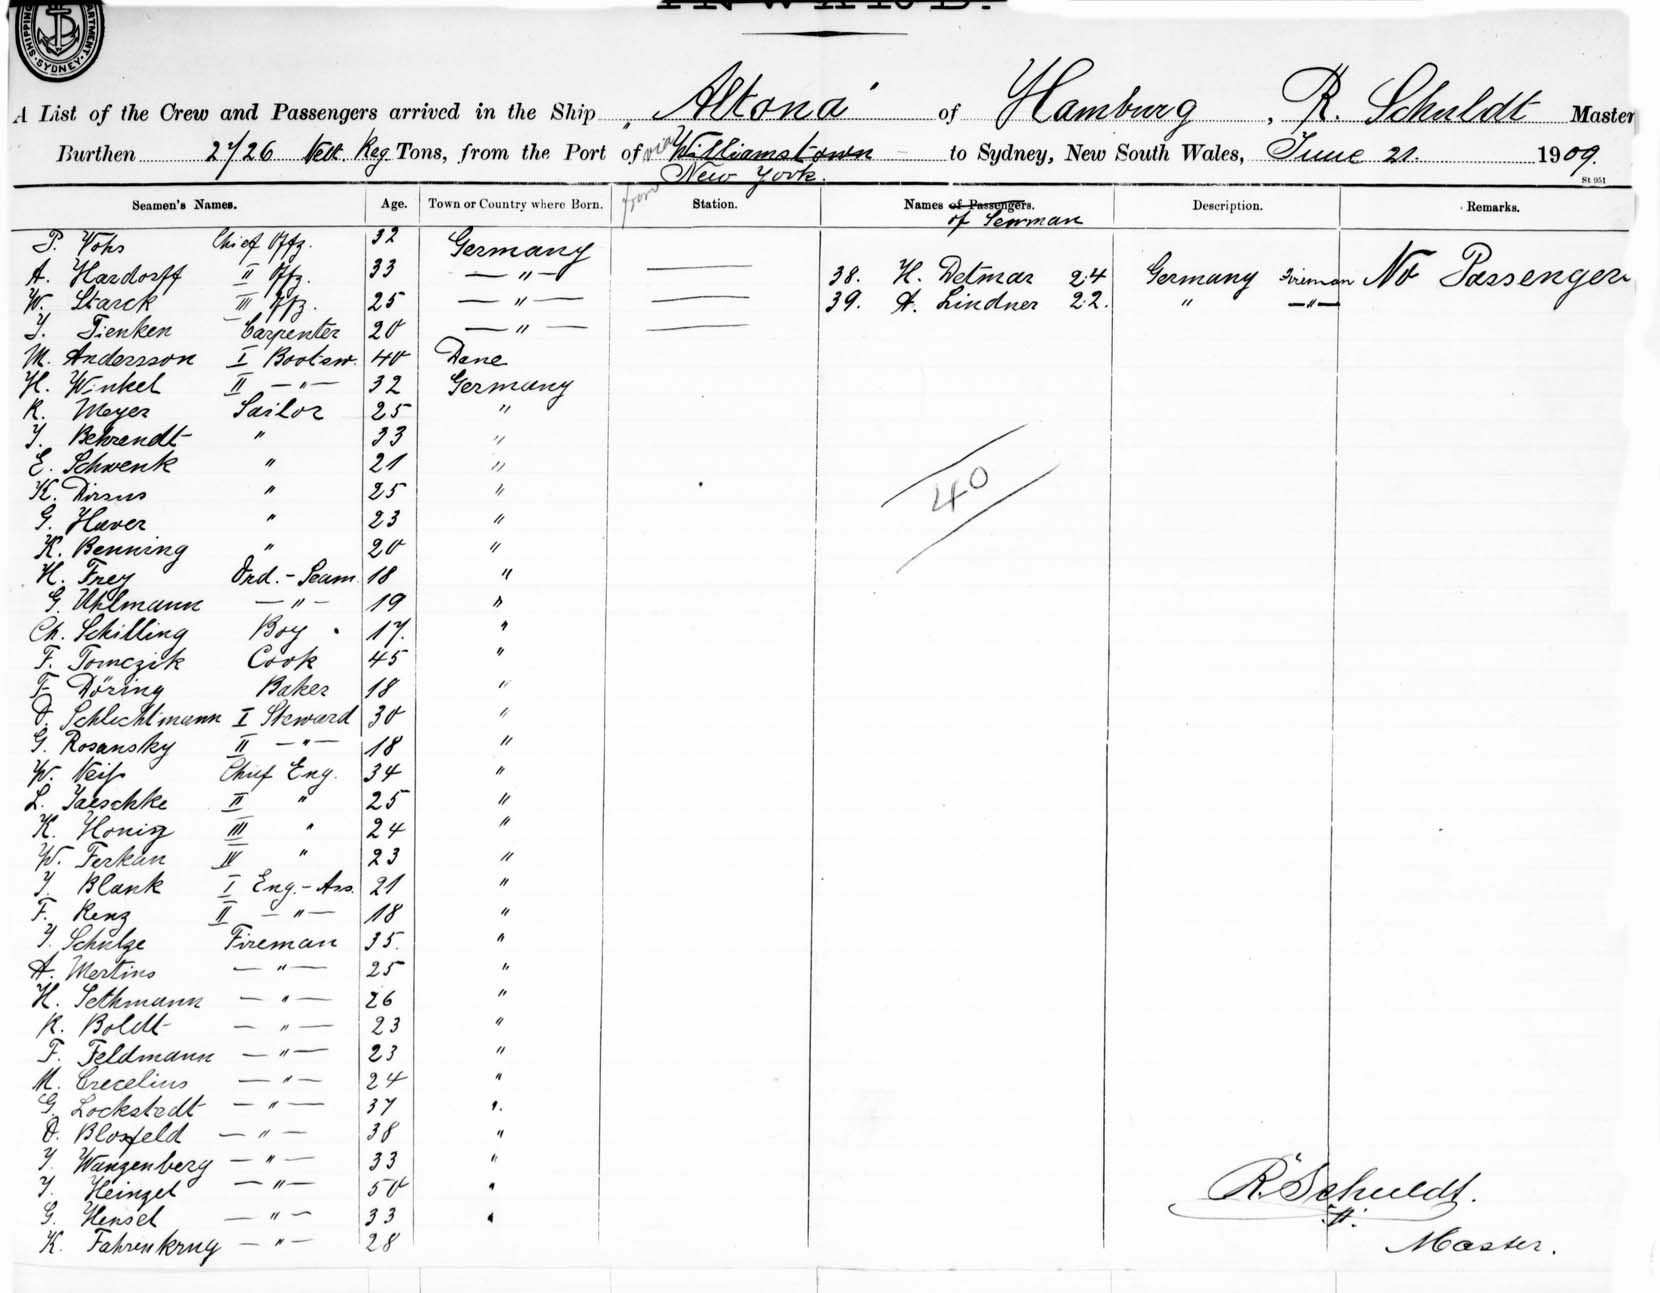 SHIPPING DEPARTMENT · SYDNEY ·
INWARD.
A List of the Crew and Passengers arrived in the Ship „Altona" of Hamburg, R. Schuldt Master
Burthen 2726 Nett. Reg Tons, from the Port of via Williamstown to Sydney, New South Wales, June 21. 1909.
from New York.
St 951
Seamen's Names. Age. Town or Country where Born. Station. Names of Passengers. Description. Remarks.
of Seaman
P. Vohs Chief Offz. 32 Germany
A. Hardorff II Offz. 33 — " — 38. H. Detmar 24 Germany Fireman No Passengers
W. Starck III Offz. 25 — " — 39. A. Lindner 22. " — " —
J. Tienken Carpenter 20 — " —
M. Anderson I Bootsm. 40 Dane
H. Winkel II — " — 32 Germany
R. Meyer Sailor 25 "
J. Behrendt " 33 "
E. Schwenk " 21 "
K. Dirsus " 25 "
G. Haver " 23 "
K. Benning " 20 "
40
H. Frey Ord. - Seam. 18 "
G. Uhlmann — " — 19 "
Ch. Schilling Boy 17. "
F. Tomczik Cook 45 "
F. Döring Baker 18 "
D. Schlichtmann I Steward 30 "
G. Rosansky II — " — 18 "
W. Neiß Chief Eng. 34 "
L. Jaeschke II " 25 "
K. Honig III " 24 "
W. Ferkau IV " 23 "
J. Blank I Eng. - Ass. 21 "
F. Renz II — " — 18 "
J. Schulze Fireman 35. "
A. Mertins — " — 25 "
H. Sethmann — " — 26 "
R. Boldt — " — 23 "
F. Feldmann — " — 23 "
M. Crecelius — " — 24 "
G. Lockstedt — " — 37 "
D. Blosfeld — " — 38 "
J. Wangenberg — " — 33 "
J. Heinzel — " — 50 "
G. Hensel — " — 33 "
K. Fahrenkrug — " — 28
R. Schuldt.
Master.